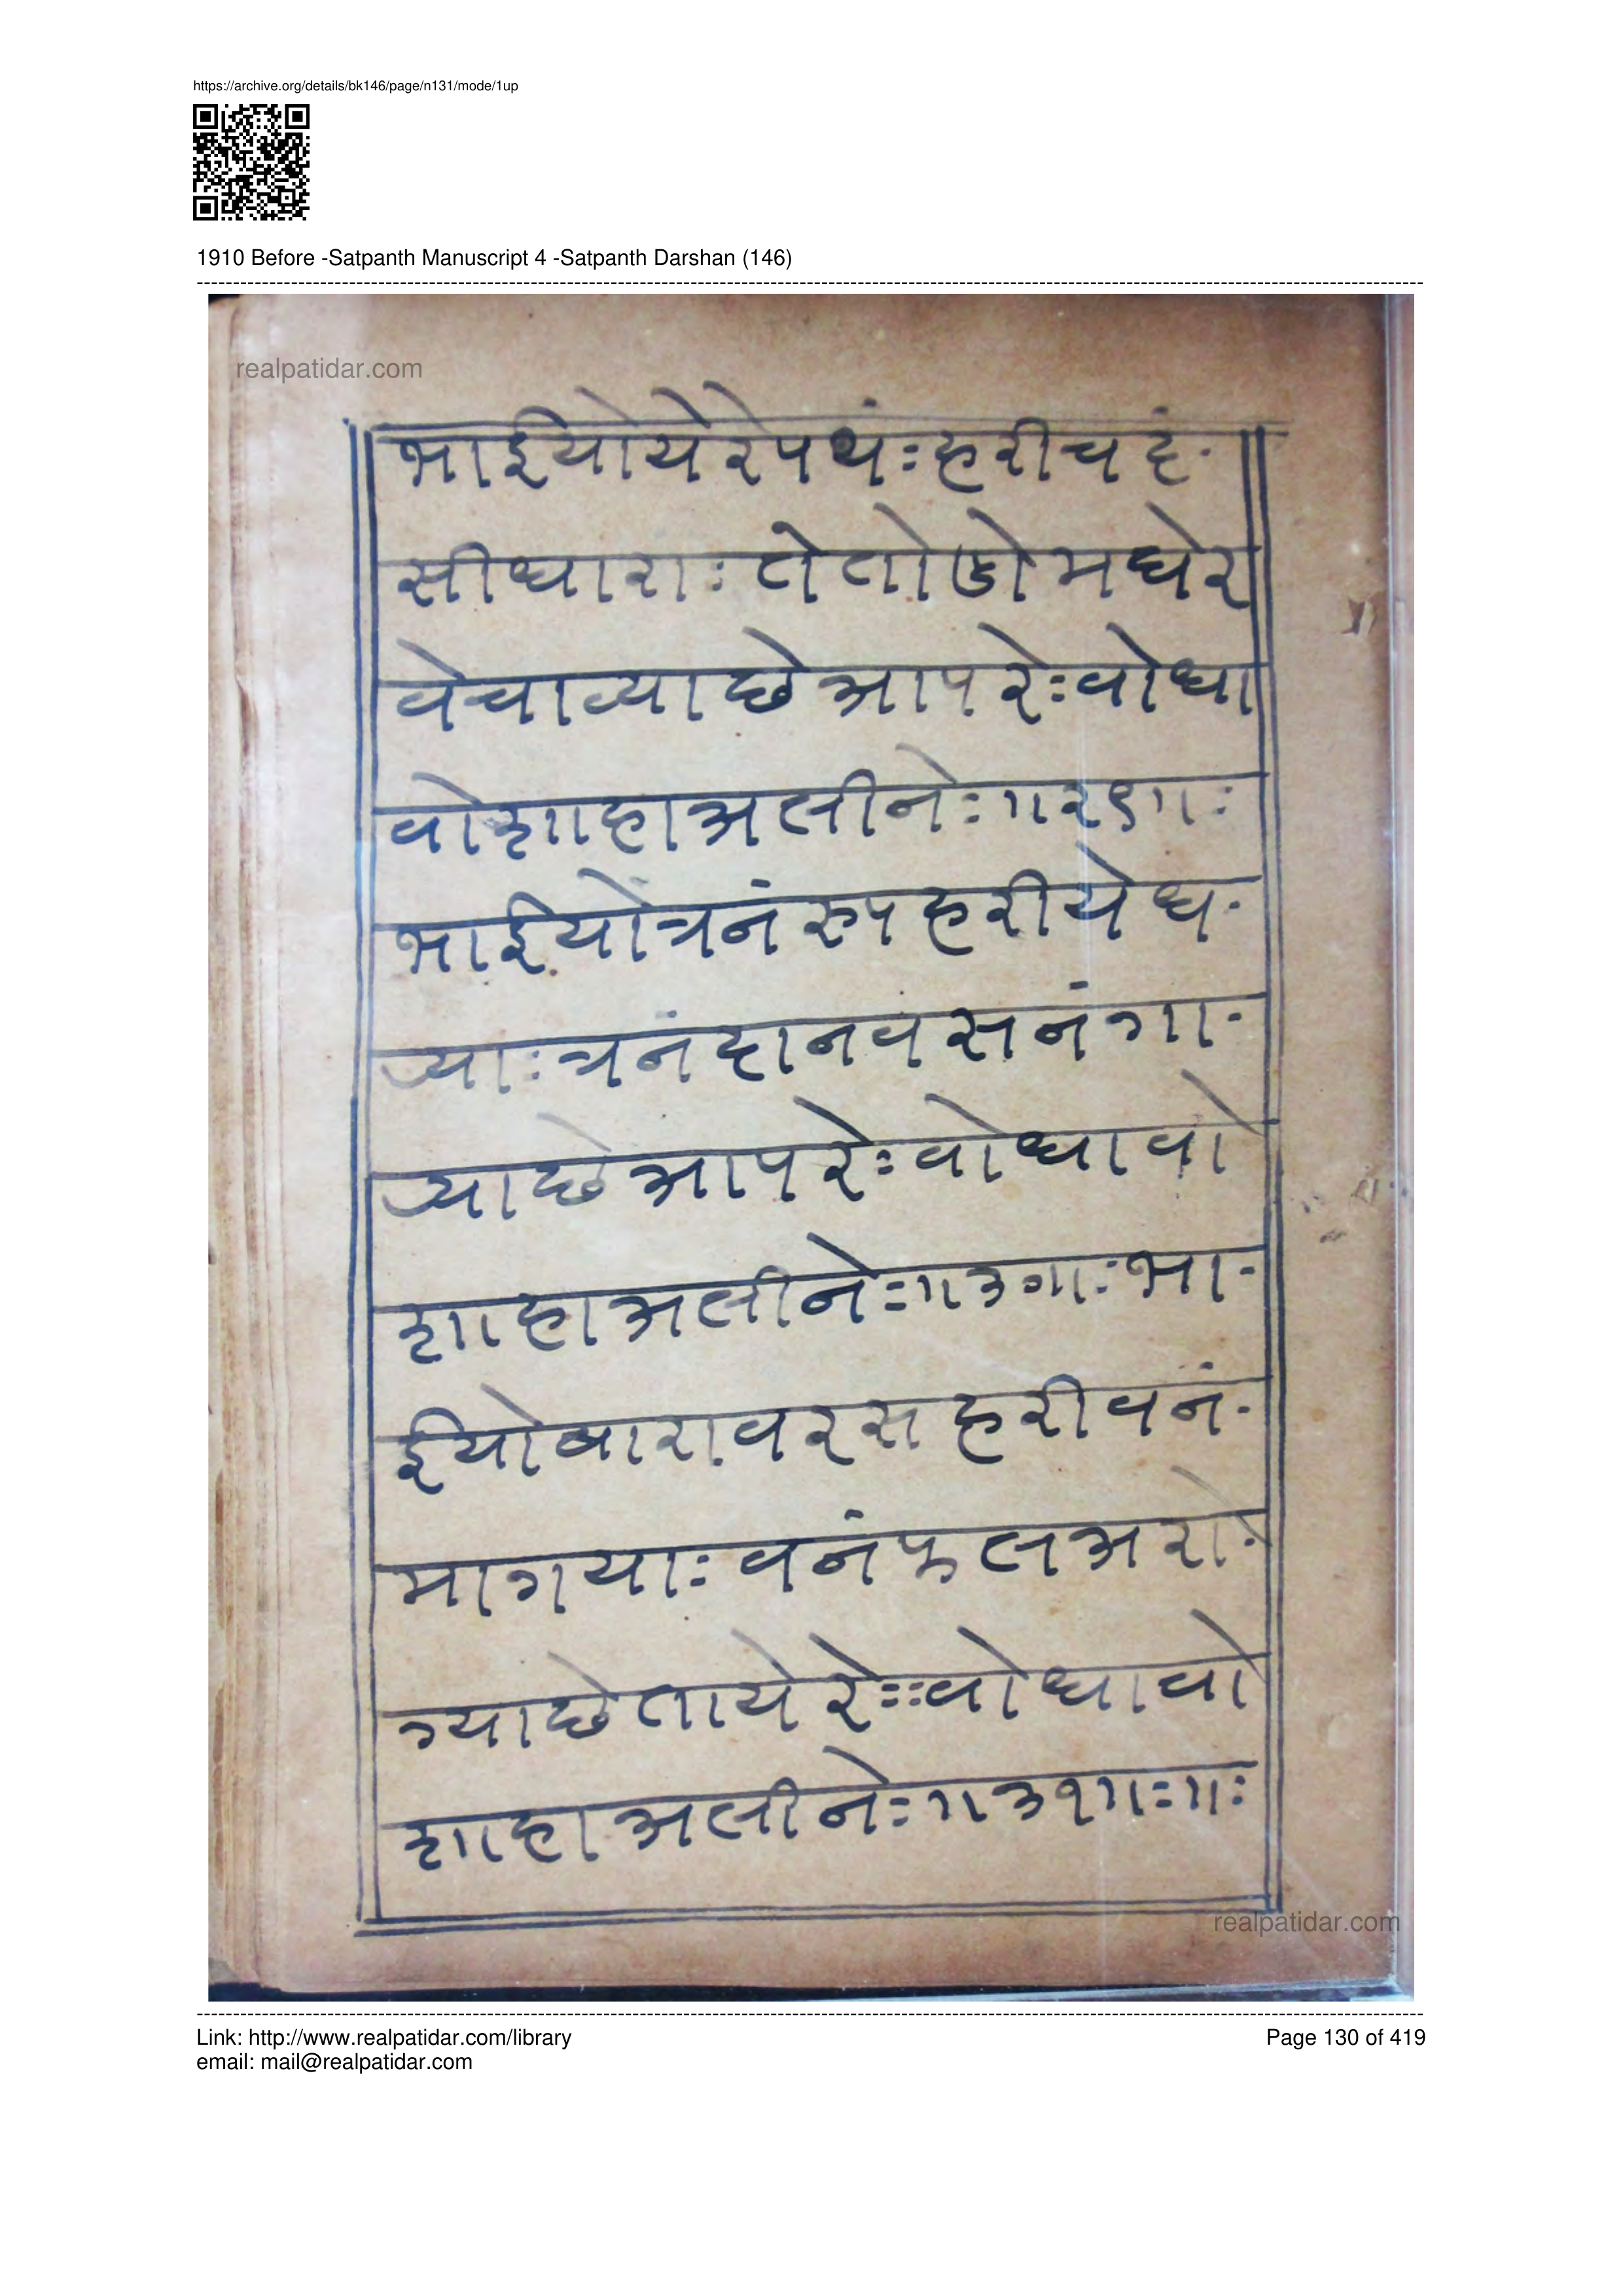 https://archive.org/details/bk146/page/n131/mode/1up
1910 Before -Satpanth Manuscript 4 -Satpanth Darshan (146)
realpatidar.com
भाईयोयेरेपथंःहरीचदं
सीधाराःतेतोडोमघेर
वेचाव्याछेआपरेःवोधा
वोशाहाअलीनेः॥२९॥ः
भाईयोत्रनंरुपहरीयेध
र्‍याःत्रनंदानवसनंगा
र्‍याछेआपरेःवोधावो
शाहाअलीनेः॥३०॥ःभा
ईयोबारावरसहरीवनं
मागयाःवनंफलअरो
ग्याछेतायेरेःःवोधावो
शाहाअलीनेः॥३१॥ः॥ः
realpatidar.com
Link: http://www.realpatidar.com/library
Page 130 of 419
email: mail@realpatidar.com